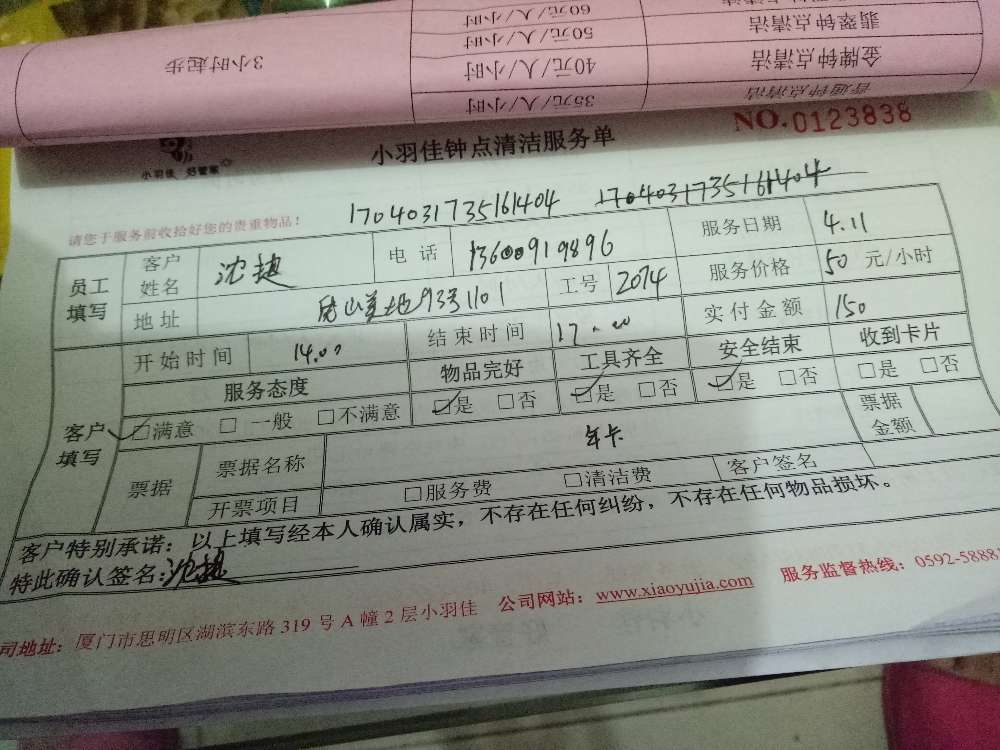 3小时起步
60元/人/小时
50元/人/小时 翡翠钟点清洁
40元/人/小时 金牌钟点清洁
35元/人/小时 普通钟点清洁
小羽佳 好管家
小羽佳钟点清洁服务单
NO.0123838
请您于服务前收拾好您的贵重物品!
1704031735161404 1704031735161404
员工填写 客户姓名 沈捷 电话 13600919896 服务日期 4.11
地址 93号1101 工号 2074 服务价格 50 元/小时
开始时间 14.00 结束时间 17.00 实付金额 150
客户填写 服务态度 物品完好 工具齐全 安全结束 收到卡片
☑满意 □一般 □不满意 ☑是 □否 ☑是 □否 ☑是 □否 □是 □否
票据 票据名称 年卡 票据金额
开票项目 □服务费 □清洁费 客户签名
客户特别承诺:以上填写经本人确认属实,不存在任何纠纷,不存在任何物品损坏。
特此确认签名:沈捷
司地址:厦门市思明区湖滨东路 319 号 A 幢 2 层小羽佳 公司网站:www.xiaoyujia.com 服务监督热线:0592-5888